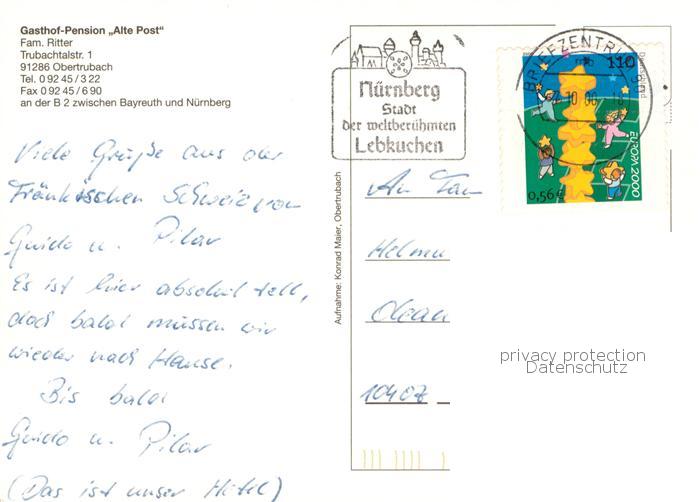 Gasthof-Pension „Alte Post“
Fam. Ritter
Trubachtalstr. 1
91286 Obertrubach
Tel. 0 92 45 / 3 22
Fax 0 92 45 / 6 90
an der B 2 zwischen Bayreuth und Nürnberg
Viele Grüße aus der
Fränkischen Schweiz von
Guido u. Pilar
Es ist hier absolut toll,
doch bald müssen wir
wieder nach Hause.
Bis bald
Guido u. Pilar
(Das ist unser Hotel)
Aufnahme: Konrad Maier, Obertrubach
Nürnberg
Stadt
der weltberühmten
Lebkuchen
BRIEFZENTRUM 90
10.00
110
Deutschland
EUROPA 2000
0,56€
An Fam
Helmu
10407
privacy protection
Datenschutz